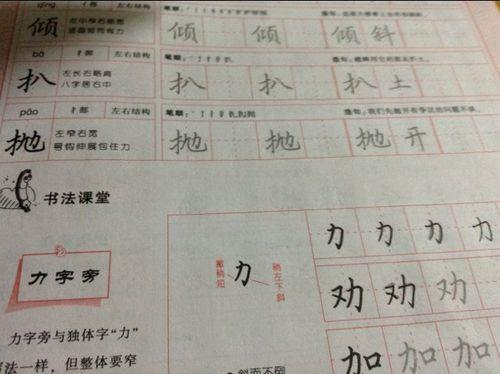 qīng 亻部 左右结构
倾 左中窄右略宽 倾 倾 倾 斜
bā 扌部 左右结构 笔顺:
扒 左长右略高 八字居右中 扒 扒 扒 土
pāo 扌部 左右结构 笔顺: 造句:我们先抛开有争议的问题不谈。
抛 左窄右宽 弯钩伸展包住力 抛 抛 抛 开
书法课堂
力 力 力 力
力字旁 撇稍短 力 稍左下斜
劝 劝 劝 劝
力字旁与独体字“力”
法一样,但整体要窄 加 加 加 加
斜而不倒